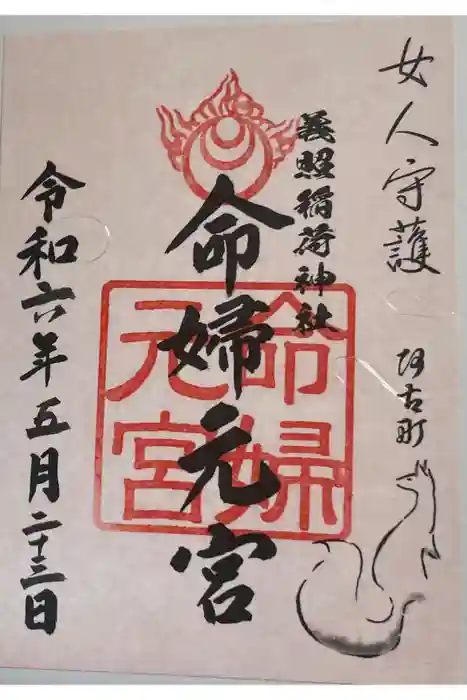 女人守護
阿古町
義照稲荷神社
命婦元宮
命婦元宮
令和六年五月二十三日